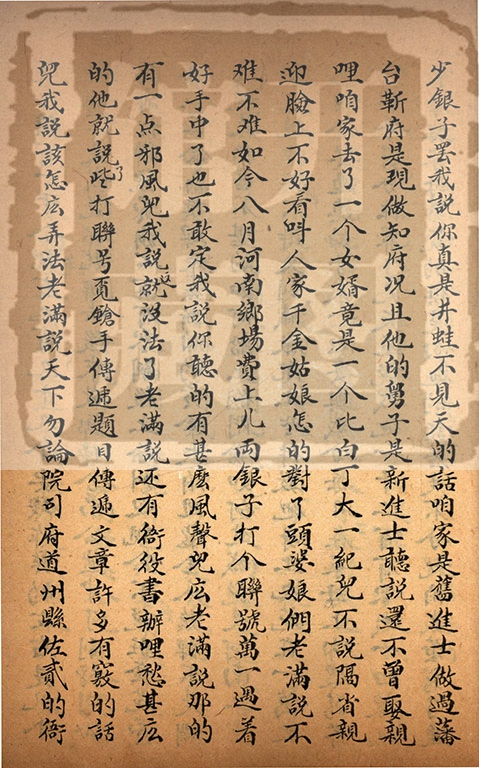 少銀子罢我説你真是井蛙不見天的話咱家是舊進士做過藩
台靳府是現做知府况且他的舅子是新進士聽説還不曾娶親
哩咱家去了一个女婿竟是一个比白丁大一紀兒不説隔省親
迎臉上不好看呌人家千金姑娘怎的對了頭婆娘們老滿説不
难不难如今八月河南鄉場費上几兩銀子打个聯號萬一遇着
好手中了也不敢定我説你聽的有甚麽風聲兒広老滿説那的
有一点邪風兒我説這就沒法了老滿説还有衙役書辦哩愁甚広
的他就説了些打聯号覔鎗手傳遞題目傳遞文章許多有竅的話
兒我説該怎広弄法老滿説天下勿論院司府道州縣佐貳的衙